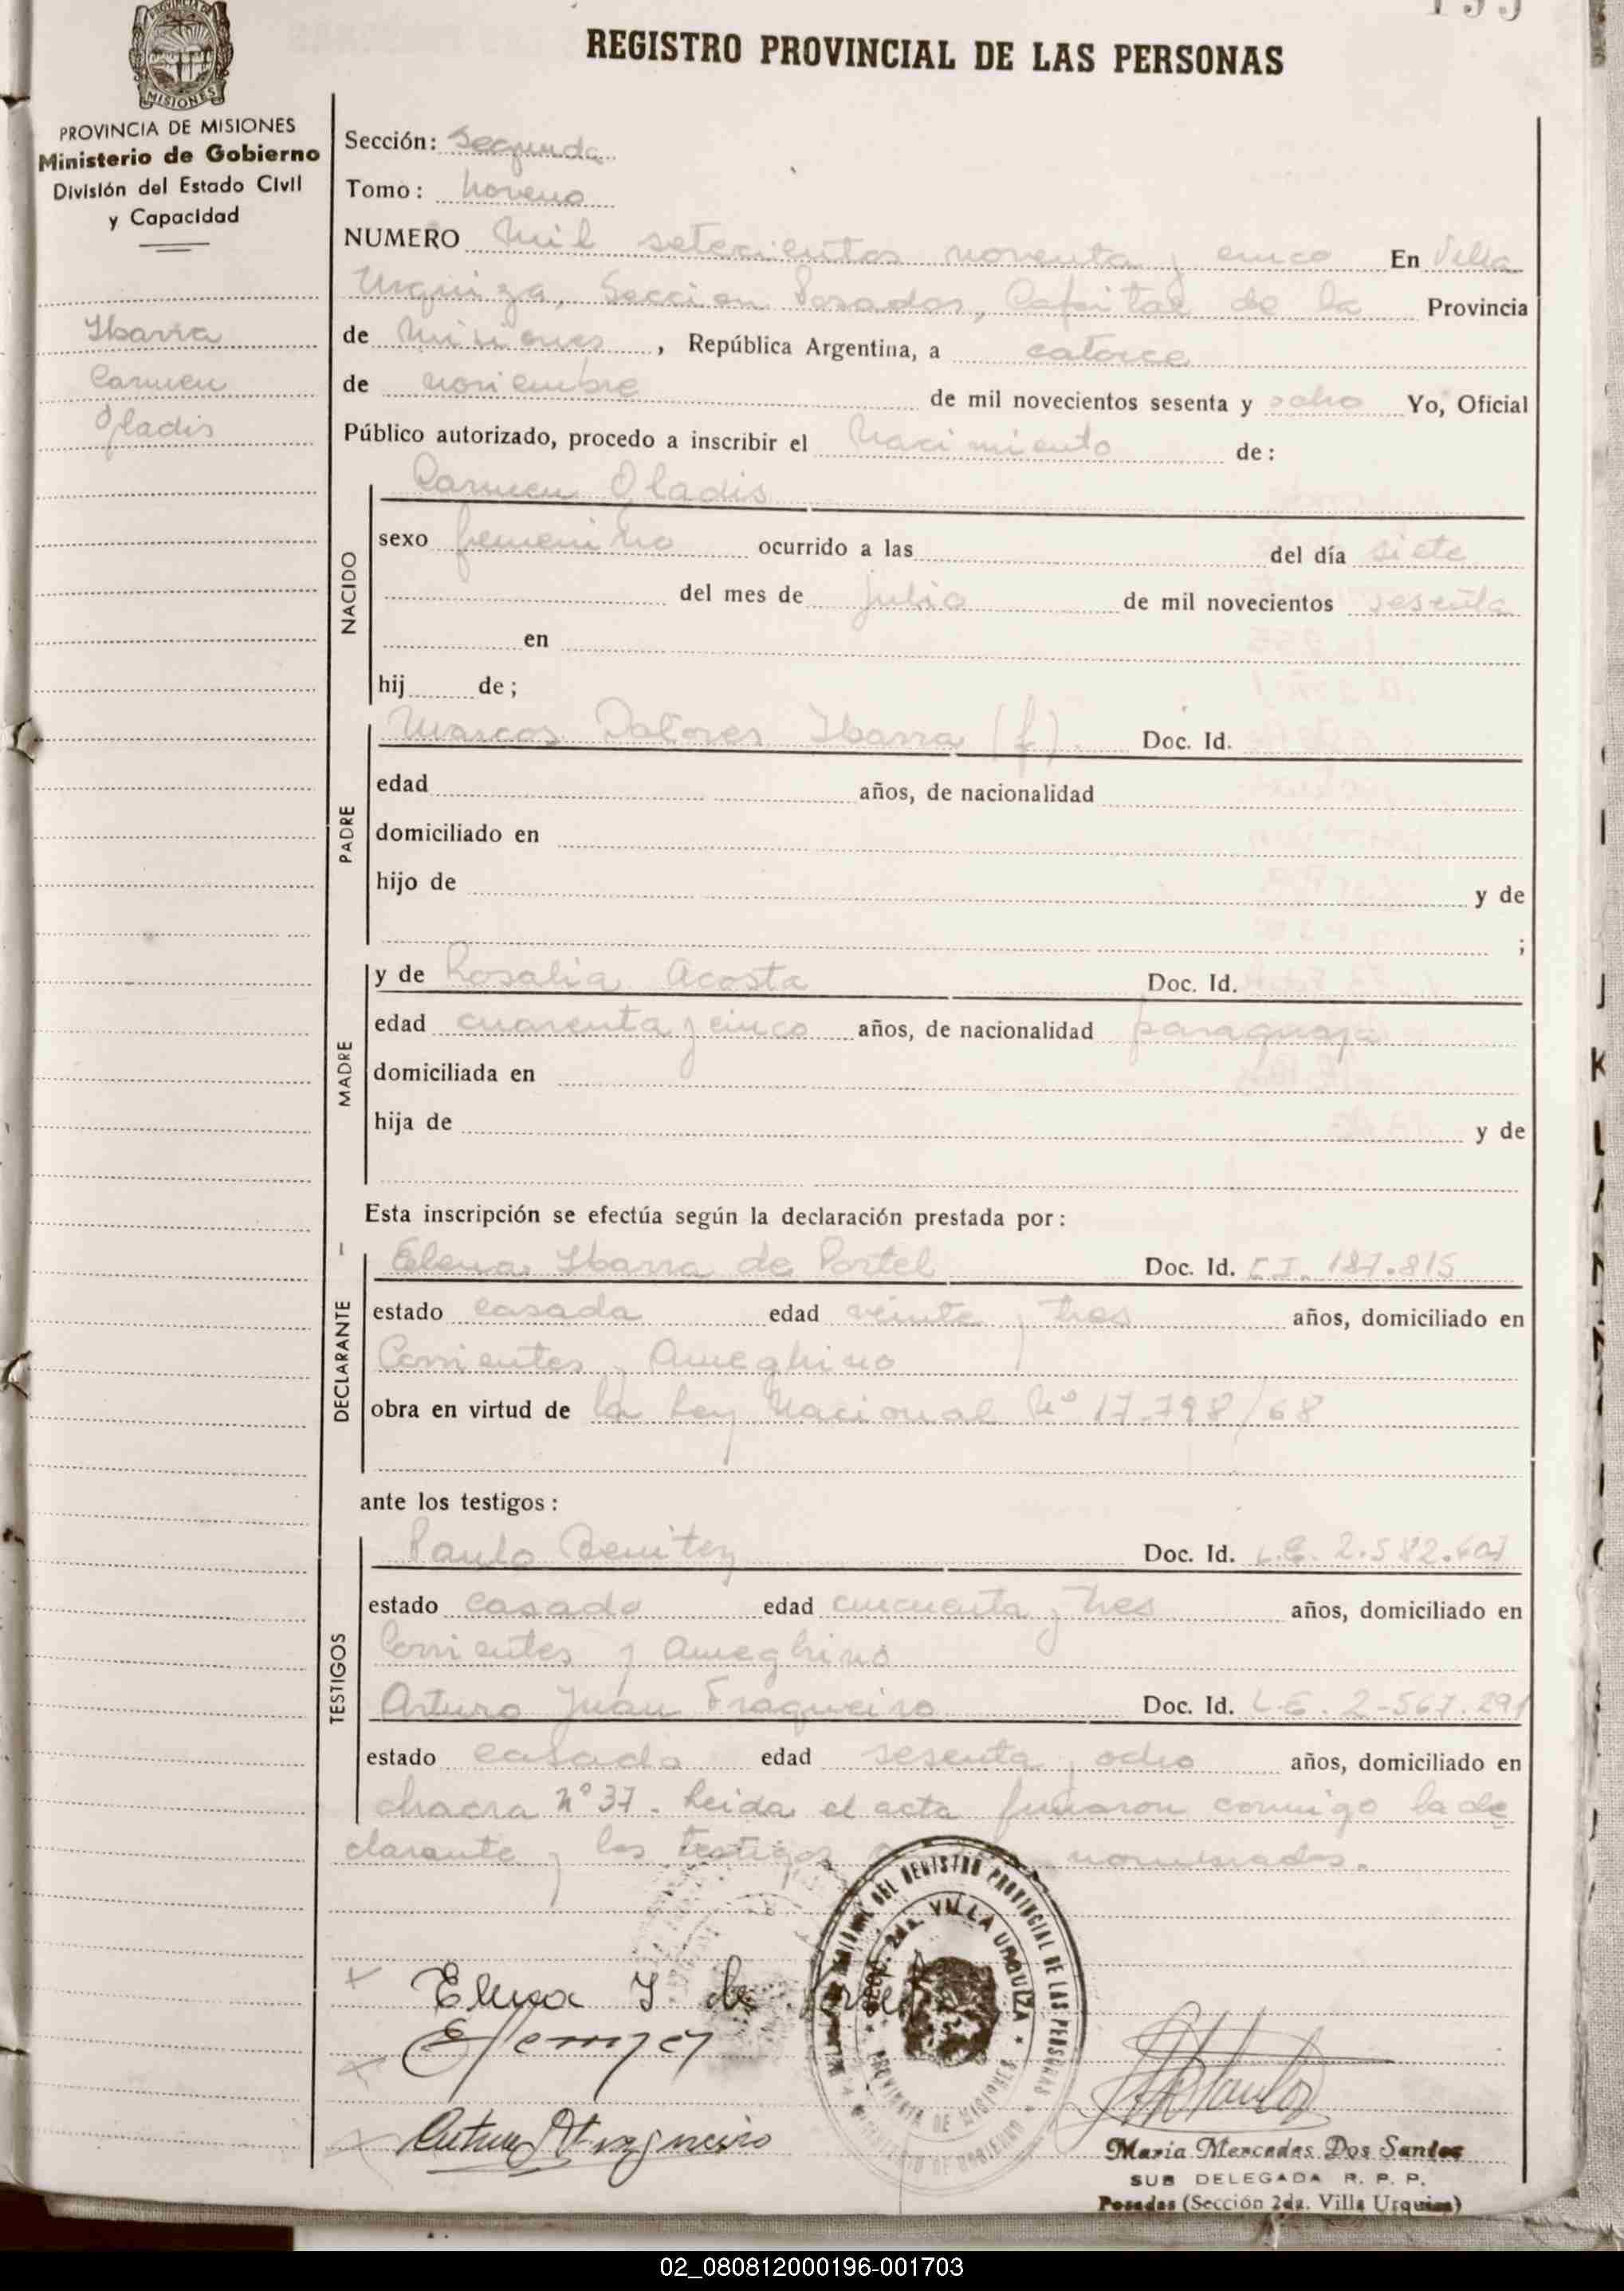 199
REGISTRO PROVINCIAL DE LAS PERSONAS
PROVINCIA DE MISIONES
MISIONES
PROVINCIA DE MISIONES
Ministerio de Gobierno
División del Estado Civil
y Capacidad
Ibarra
Carmen
Gladis
Sección: Segunda
Tomo: Noveno
NUMERO Mil setecientos noventa y cinco En Villa
Urquiza, Seccion Posadas, Capital de la Provincia
de Misiones, República Argentina, a catorce
de noviembre de mil novecientos sesenta y ocho Yo, Oficial
Público autorizado, procedo a inscribir el Nacimiento de:
NACIDO
Carmen Gladis
sexo femenino ocurrido a las del día siete
del mes de julio de mil novecientos sesenta
en
hij de;
PADRE
Marcos Dolores Ibarra (f). Doc. Id.
edad años, de nacionalidad
domiciliado en
hijo de y de
;
MADRE
y de Rosalia Acosta Doc. Id.
edad cuarenta y cinco años, de nacionalidad paraguaya
domiciliada en
hija de y de
Esta inscripción se efectúa según la declaración prestada por:
DECLARANTE
Elena Ibarra de Portel Doc. Id. C.I. 187.815
estado casada edad veinte y tres años, domiciliado en
Corrientes y Ameghino
obra en virtud de la Ley Nacional Nº 17.798/68
ante los testigos:
TESTIGOS
Paulo Benitez Doc. Id. L.E. 2.582.601
estado casado edad cincuenta y tres años, domiciliado en
Corrientes y Ameghino
Arturo Juan Fragueiro Doc. Id. L.E. 2-567.291
estado casado edad sesenta y ocho años, domiciliado en
chacra nº 37. Leida el acta firmaron conmigo la de
clarante y los testigos nombrados.
DEL REGISTRO PROVINCIAL DE LAS PERSONAS
SECC. 2da. VILLA URQUIZA
PROVINCIA DE MISIONES
MINISTERIO DE GOBIERNO
Elena I de Portel
Arturo J Fragueiro
Maria Mercedes Dos Santos
SUB DELEGADA R. P. P.
Posadas (Sección 2da. Villa Urquiza)
02_080812000196-001703